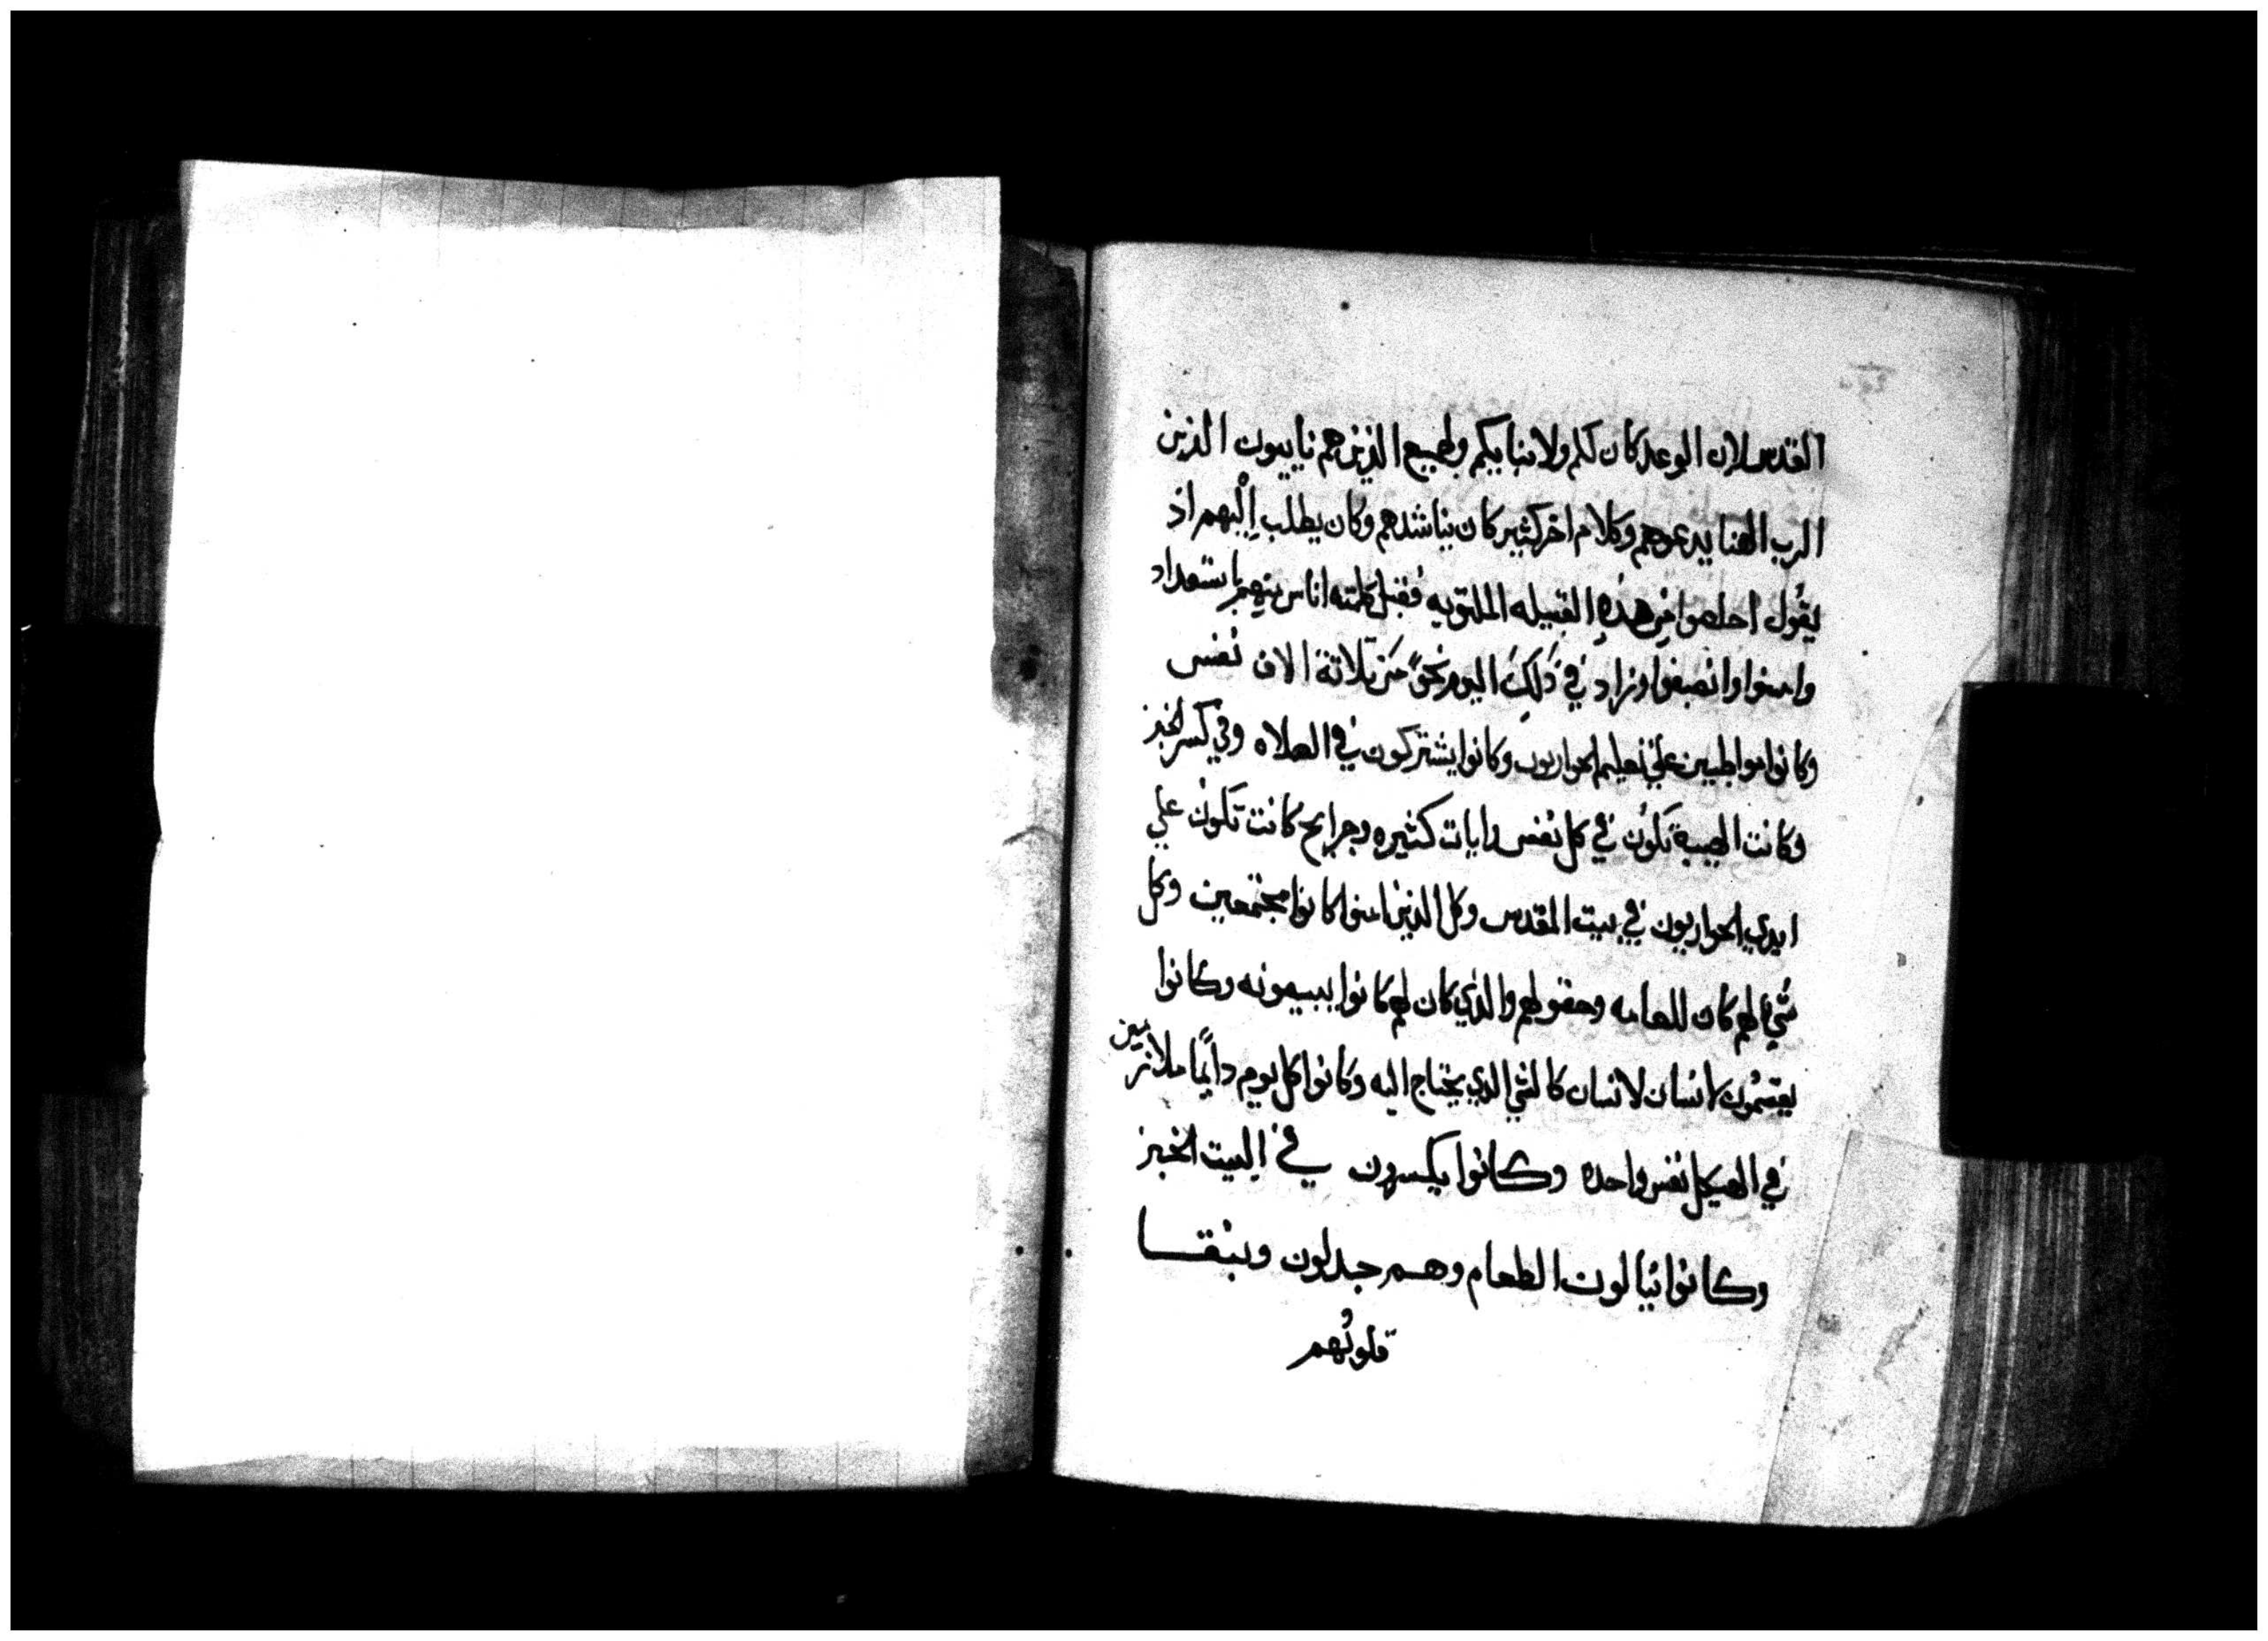 القدس لان الوعد كان لكم ولابنايكم ولجميع الذين هم ناييون الذين
الرب الهنا يدعوهم وكلام اخر كثير كان يناشدهم وكان يطلب إليهم اذ
يقول اخلصوا من هذه القبيله الملتويه فقبل كلمته اناس منهم باستعداد
وامنوا وانصبغوا وزاد في ذلك اليوم نحو من ثلاتة الاف نفس
وكانوا مواظبين علي تعليم الحواريون وكانوا يشتركون في الصلاه وفي كسر الخبز
وكانت الهيبة تكون في كل نفس وايات كثيره وجرايح كانت تكون علي
ايدي الحواريون في بيت المقدس وكل الذين امنوا كانوا مجتمعين وكل
شي لهم كان للعامه وحقولهم والذي كان لهم كانوا يبيعونه وكانوا
يقسمون لانسان لانسان كالشي الذي يحتاج اليه وكانوا كل يوم دايمًا ملازمين
في الهيكل نفس واحده وكانوا يكسرون في البيت الخبز
وكانوا ينالون الطعام وهم جدلون وبنقا
قلوبهم